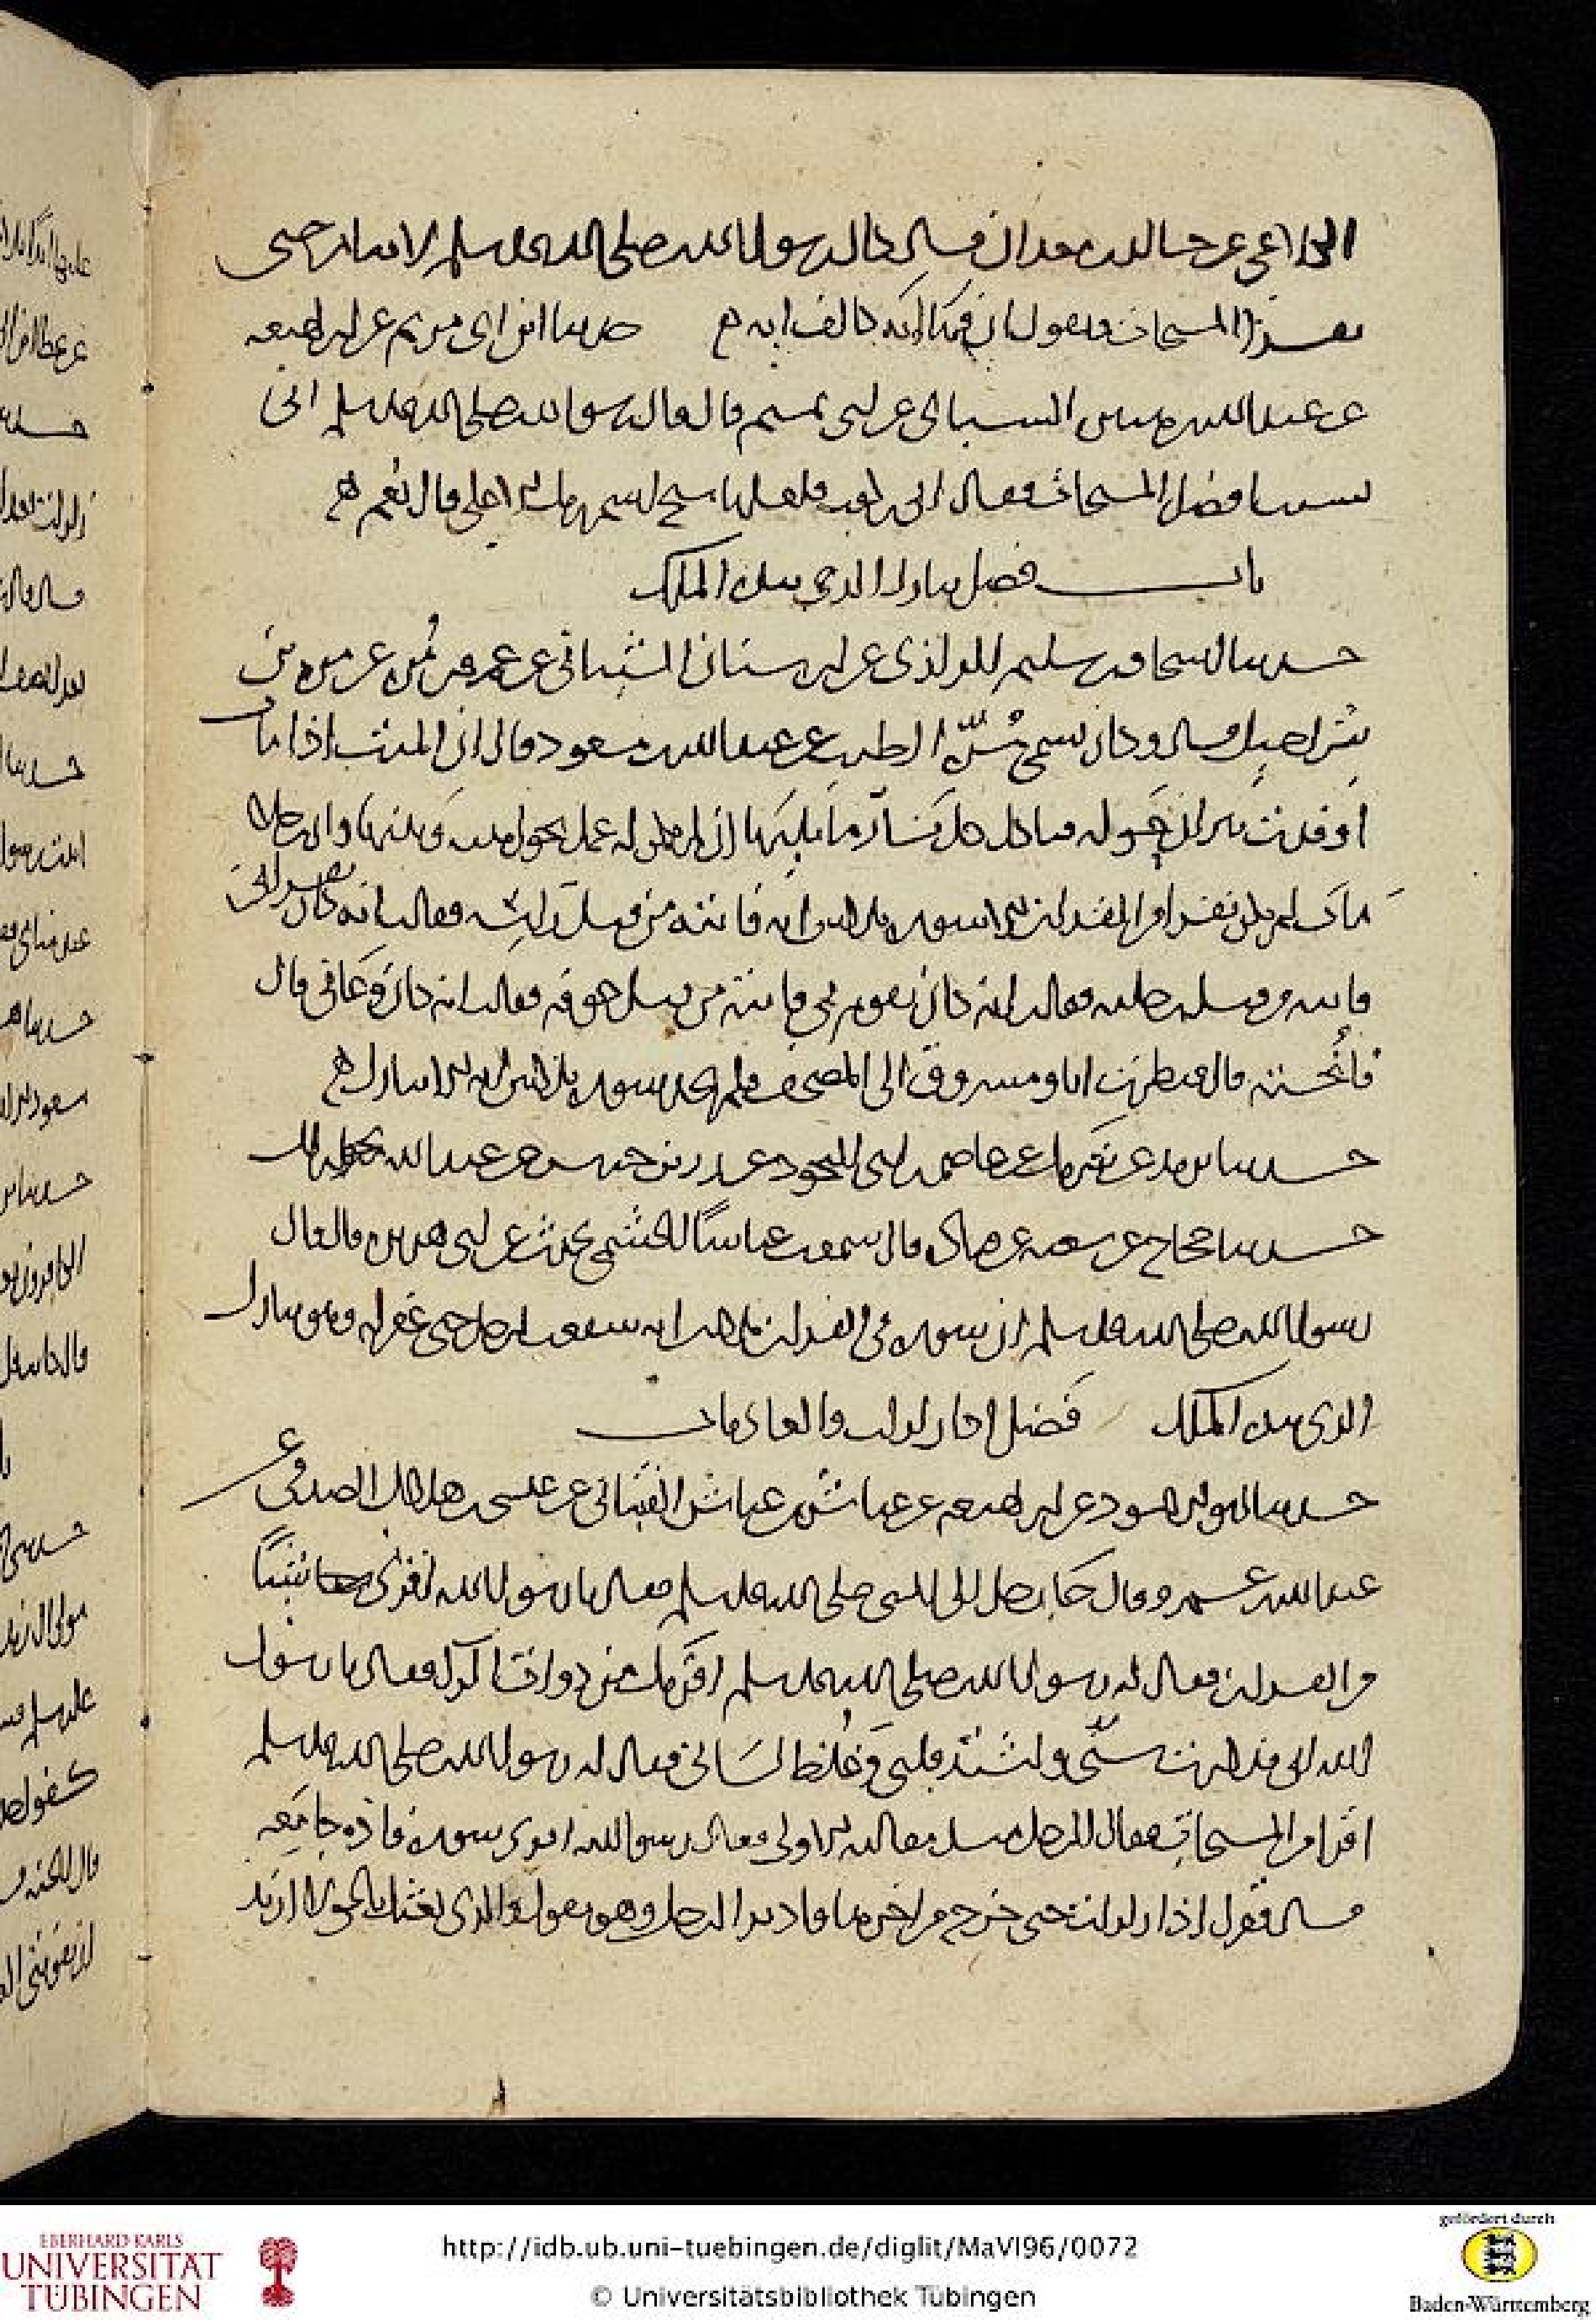 الكلاعي عن خالد بن معدان قال كان رسول الله صلى الله عليه وسلم لا ينام حتى
يقرأ المسبحات ويقول ان فيهن آية كألف آية حدثنا ابن ابي مريم عن ابن لهيعة
عن عبد الله بن هبيرة السبائي عن ابي تميم قال قال رسول الله صلى الله عليه وسلم اني
نسيت افضل المسبحات فقال ابي بن كعب فلعلها سبح اسم ربك الاعلى قال نعم
باب فضل تبارك الذي بيده الملك
حدثنا اسحاق بن سليمن الرازي عن ابي سنان الشيباني عن عمرو بن مرة عن مرة بن
شراحيل قال وكان يسمى مرة الطيب عن عبد الله بن مسعود قال ان الميت اذا مات
اوقدت نيران حوله فتاكل كل نار ما يليها ان لم يكن له عمل يحول بينه وبينها وان رجلا
مات لم يكن يقرأ من القران الا سورة ثلاثين اية فاتته من قبل رأسه فقالت انه كان يقرأني
فاتته من قبل رجليه فقالت انه كان يقوم بي فاتته من قبل جوفه فقالت انه كان وعاني قال
فانجته قال فنظرت انا ومسروق الى المصحف فلم نجد سورة ثلاثين اية الا تبارك
حدثنا يزيد عن شريك عن عاصم بن ابي النجود عن زر بن حبيش عن عبد الله نحو ذلك
حدثنا حجاج عن شعبة عن قتادة قال سمعت عباسا الجشمي يحدث عن ابي هريرة قال قال
رسول الله صلى الله عليه وسلم ان سورة في القران ثلاثين اية شفعت لرجل حتى غفر له وهو تبارك
الذي بيده الملك فضل اذا زلزلت والعاديات
حدثنا ابو الاسود عن ابن لهيعة عن عياش بن عباس القتباني عن عيسى بن هلال الصدفي عن
عبد الله بن عمرو قال جا رجل الى النبي صلى الله عليه وسلم فقال يا رسول الله اقرئني شيئا
من القران فقال له رسول الله صلى الله عليه وسلم اقرئك من ذوات الر فقال يا رسول
الله اني قد كبرت سني واشتد قلبي وغلظ لساني فقال له رسول الله صلى الله عليه وسلم
اقرأ من المسبحات فقال الرجل مثل مقالته الاولى فقال رسول الله اقرئ سورة فاذة جامعة
قال فقرأ اذا زلزلت حتى خرج من اخرها فادبر الرجل وهو يقول والذي بعثك بالحق لا ازيد
EBERHARD KARLS
UNIVERSITÄT
TÜBINGEN
http://idb.ub.uni-tuebingen.de/diglit/MaVI96/0072
© Universitätsbibliothek Tübingen
gefördert durch
Baden-Württemberg